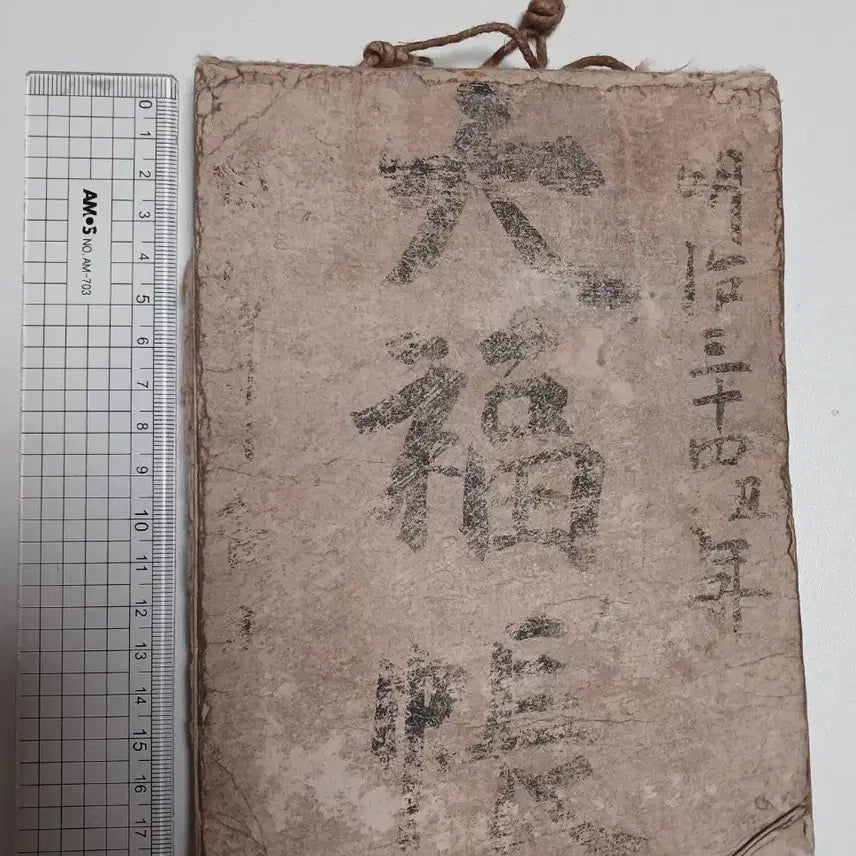 明治三十四五年
大福帳
AMOS NO. AM-703
0 1 2 3 4 5 6 7 8 9 10 11 12 13 14 15 16 17